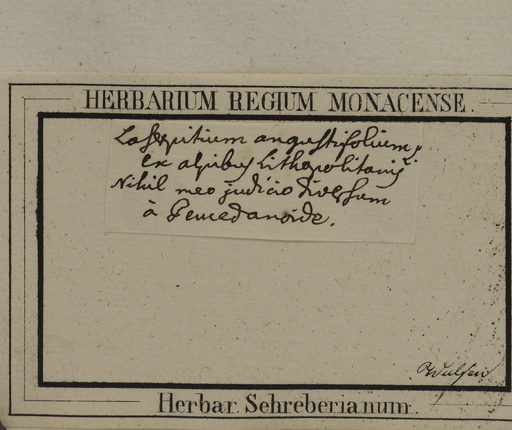 HERBARIUM REGIUM MONACENSE.
Laserpitium angustifolium,
ex alpibus Lithopolitanis
Nihil meo judicio diversum
à Peucedanoide.
Wulfen
Herbar. Schreberianum.